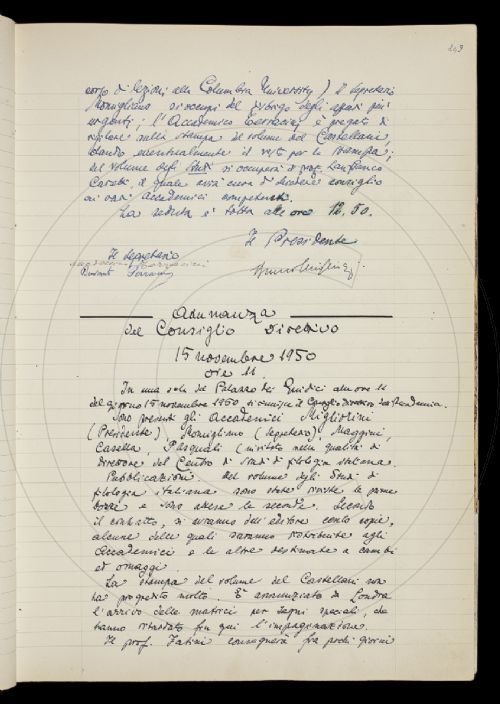 203
corso di lezioni alla Columbia University) il Segretario
Momigliano si occupi del disbrigo degli affari più
urgenti; l'Accademico è pregato di
vigilare sulla stampa del volume del Castellani
dando eventualmente il visto per la stampa;
del volume degli Studi si occuperà il prof. Lanfranco
Caretti, il quale avrà cura di chiedere consiglio
ai vari Accademici competenti.
La seduta è tolta alle ore 12,50.
Il Presidente
Il Segretario
Bruno Migliorini
Adunanza
del Consiglio Direttivo
15 novembre 1950
ore 11.
In una sala del Palazzo dei Giudici alle ore 11
del giorno 15 novembre 1950 si riunisce il Consiglio Direttivo dell'Accademia.
Sono presenti gli Accademici Migliorini
(Presidente), Momigliano (Segretario), Maggini,
Casella, Pasquali (invitato nella qualità di
direttore del Centro di Studi di filologia italiana.
Pubblicazioni Del volume degli Studi di
filologia italiana sono state riviste le prime
bozze e sono attese le seconde. Secondo
il contratto, si avranno dall'editore cento copie,
alcune delle quali saranno distribuite agli
Accademici e le altre destinate a cambi
ed omaggi.
La stampa del volume del Castellani non
ha progredito molto. È annunziato da Londra
l'arrivo delle matrici per segni speciali, che
hanno ritardato fin qui l'impaginazione.
Il prof. Fatini consegnerà fra pochi giorni